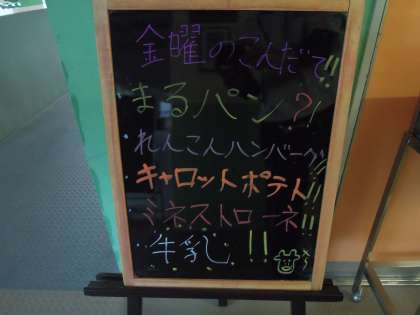 金曜のこんだて!!
まるパン?!
れんこんハンバーグ!!
キャロットポテト!!
ミネストローネ!!
牛乳!!